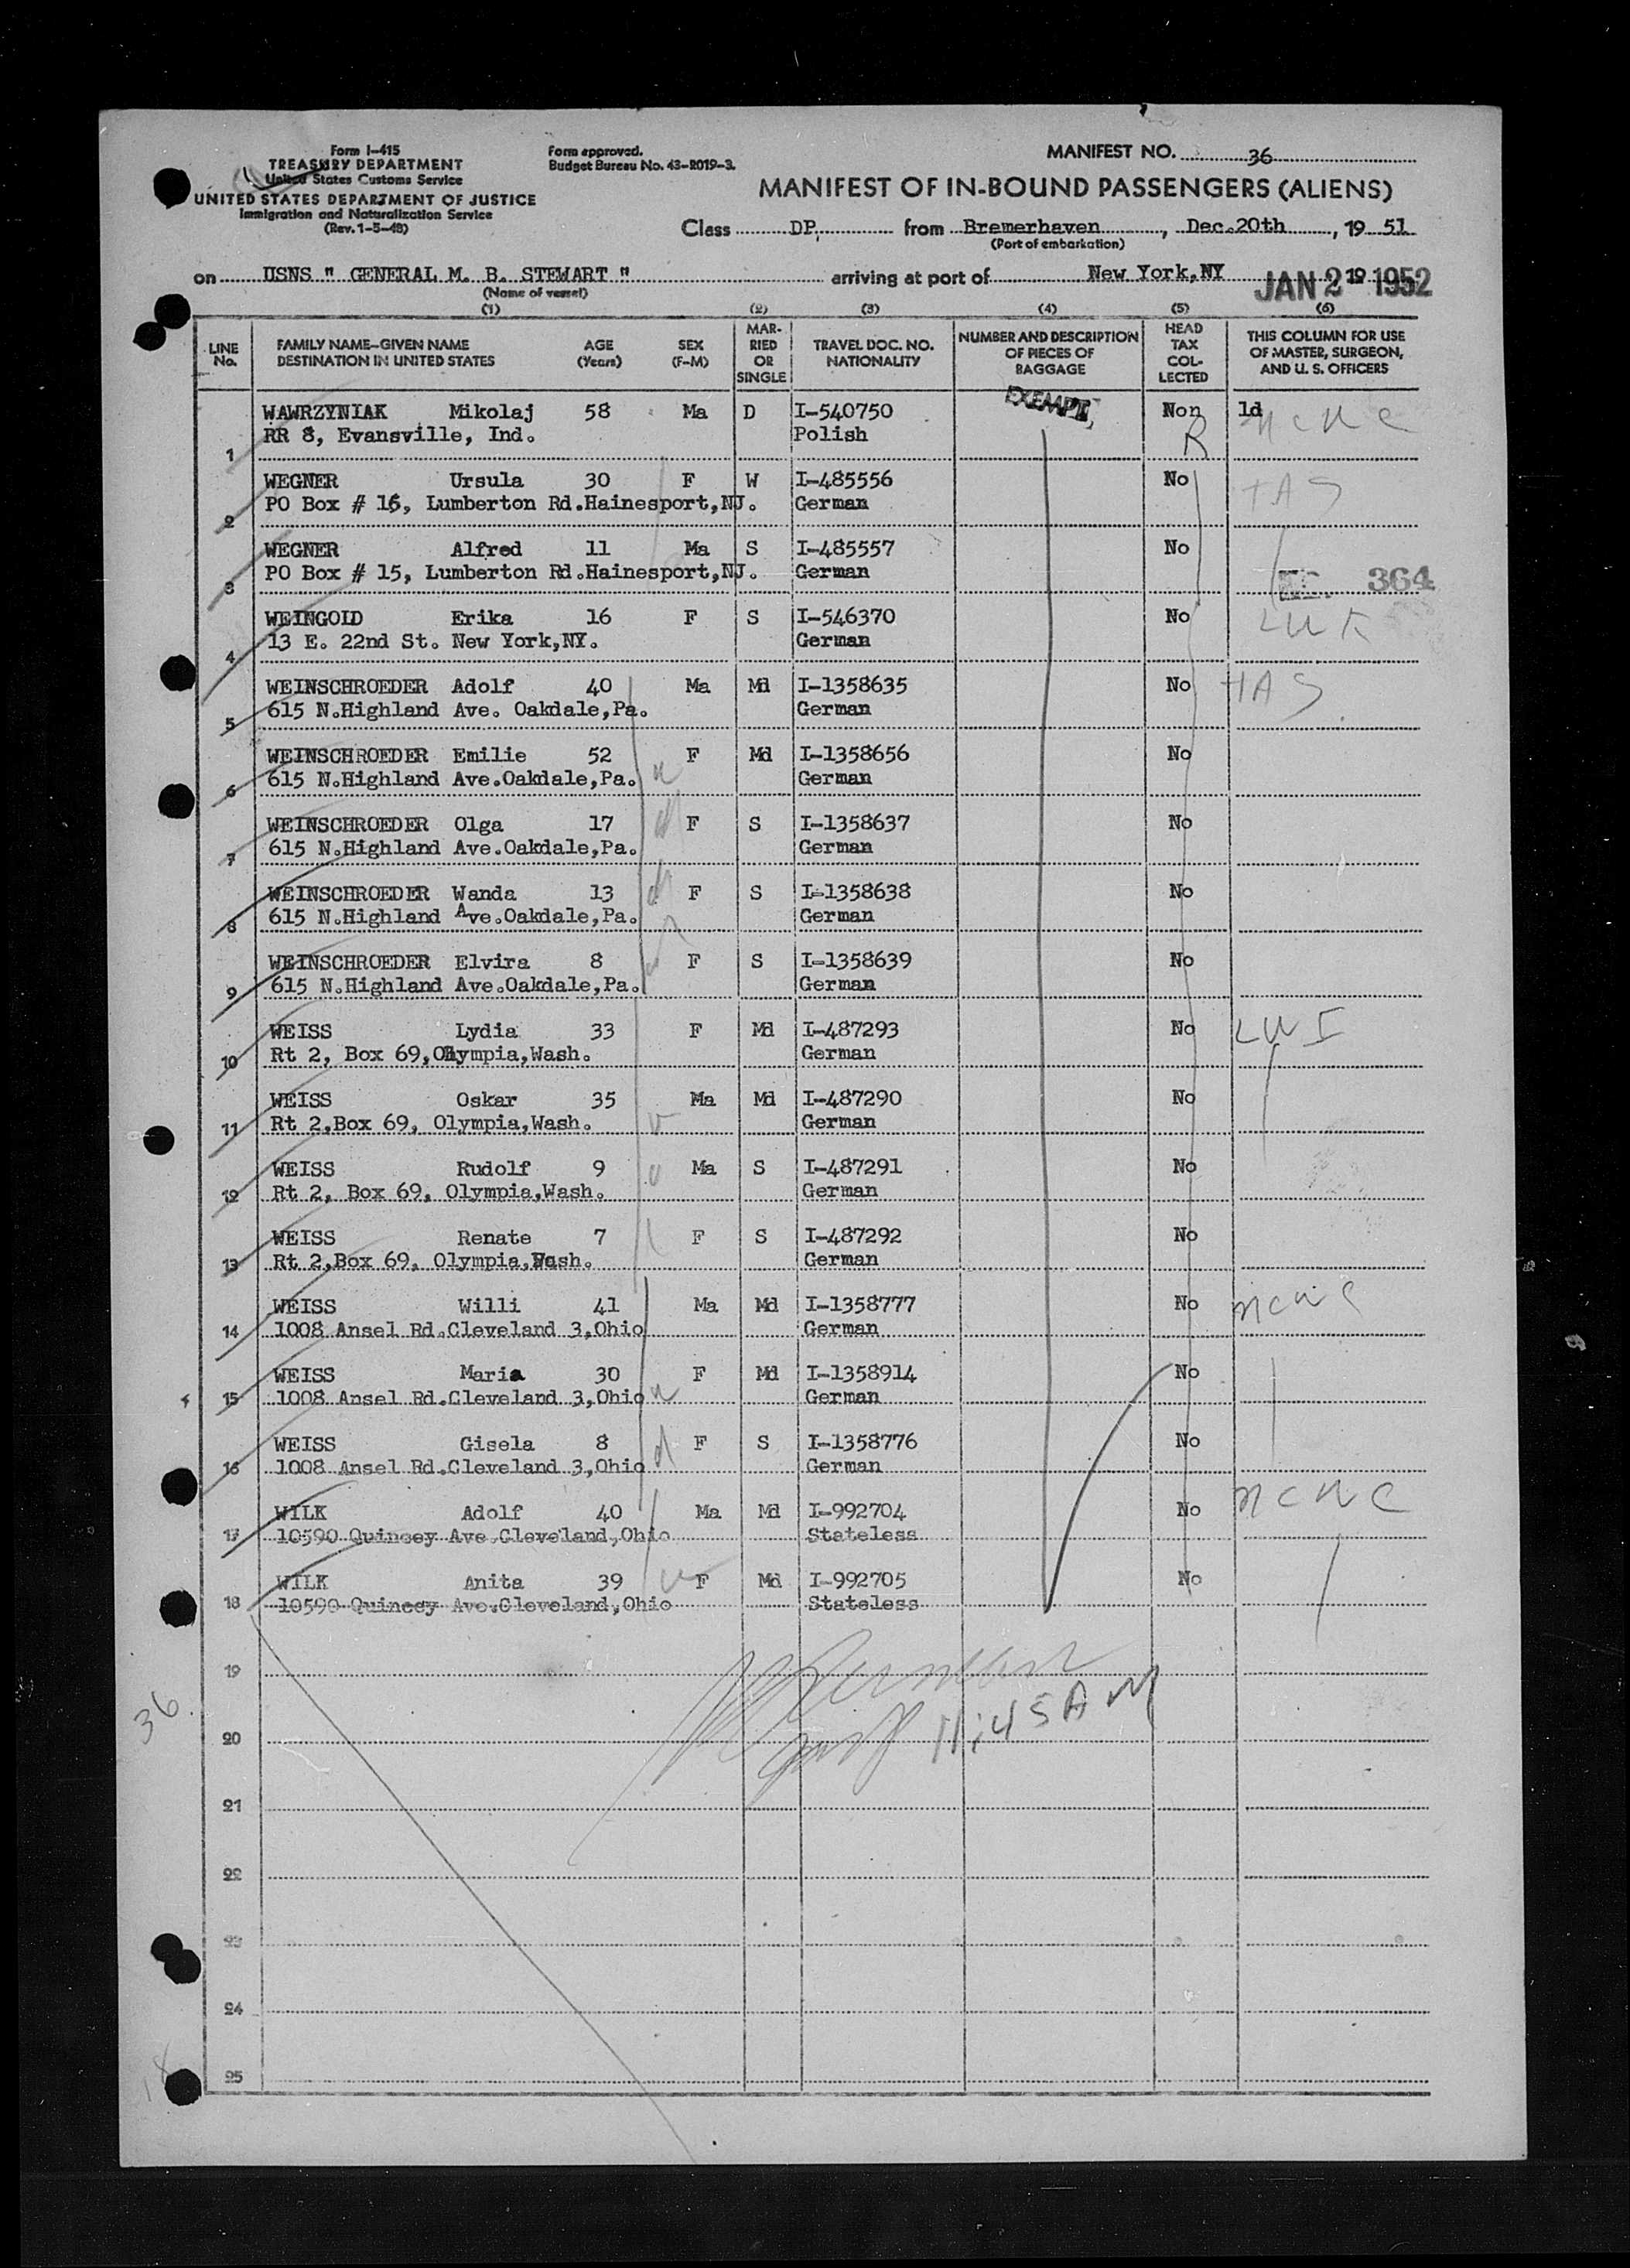 Form I-415
TREASURY DEPARTMENT
United States Customs Service
UNITED STATES DEPARTMENT OF JUSTICE
Immigration and Naturalization Service
(Rev. 1-5-48)
Form approved.
Budget Bureau No. 43-R019-3.
MANIFEST NO. 36
MANIFEST OF IN-BOUND PASSENGERS (ALIENS)
Class DP, from Bremerhaven, Dec.20th, 19 51
(Port of embarkation)
on USNS " GENERAL M. B. STEWART " arriving at port of New York,NY 19 JAN 2 1952
(Name of vessel)
(1) (2) (3) (4) (5) (6)
LINE No. FAMILY NAME-GIVEN NAME DESTINATION IN UNITED STATES AGE (Years) SEX (F-M) MARRIED OR SINGLE TRAVEL DOC. NO. NATIONALITY NUMBER AND DESCRIPTION OF PIECES OF BAGGAGE HEAD TAX COLLECTED THIS COLUMN FOR USE OF MASTER, SURGEON, AND U. S. OFFICERS
WAWRZYNIAK Mikolaj 58 Ma D I-540750 EXEMPT Non ld
1 RR 8, Evansville, Ind. Polish R
WEGNER Ursula 30 F W I-485556 No TAS
2 PO Box # 15, Lumberton Rd.Hainesport,NJ. German
WEGNER Alfred 11 Ma S I-485557 No
3 PO Box # 15, Lumberton Rd.Hainesport,NJ. German 364
WEINGOLD Erika 16 F S I-546370 No
4 13 E. 22nd St. New York,NY. German
WEINSCHROEDER Adolf 40 Ma Md I-1358635 No TAS
5 615 N.Highland Ave. Oakdale,Pa. German
WEINSCHROEDER Emilie 52 F Md I-1358656 No
6 615 N.Highland Ave.Oakdale,Pa. German
WEINSCHROEDER Olga 17 F S I-1358637 No
7 615 N.Highland Ave.Oakdale,Pa. German
WEINSCHROEDER Wanda 13 F S I-1358638 No
8 615 N.Highland Ave.Oakdale,Pa. German
WEINSCHROEDER Elvira 8 F S I-1358639 No
9 615 N.Highland Ave.Oakdale,Pa. German
WEISS Lydia 33 F Md I-487293 No
10 Rt 2, Box 69,Olympia,Wash. German
WEISS Oskar 35 Ma Md I-487290 No
11 Rt 2,Box 69, Olympia,Wash. German
WEISS Rudolf 9 Ma S I-487291 No
12 Rt 2, Box 69, Olympia,Wash. German
WEISS Renate 7 F S I-487292 No
13 Rt 2,Box 69, Olympia,Wash. German
WEISS Willi 41 Ma Md I-1358777 No
14 1008 Ansel Rd.Cleveland 3,Ohio German
WEISS Maria 30 F Md I-1358914 No
15 1008 Ansel Rd.Cleveland 3,Ohio German
WEISS Gisela 8 F S I-1358776 No
16 1008 Ansel Rd.Cleveland 3,Ohio German
WILK Adolf 40 Ma Md I-992704 No
17 10590 Quincey Ave.Cleveland,Ohio Stateless
WILK Anita 39 F Md I-992705 No
18 10590 Quincey Ave.Cleveland,Ohio Stateless
19
36
20 11:45 AM
21
22
23
24
25
18